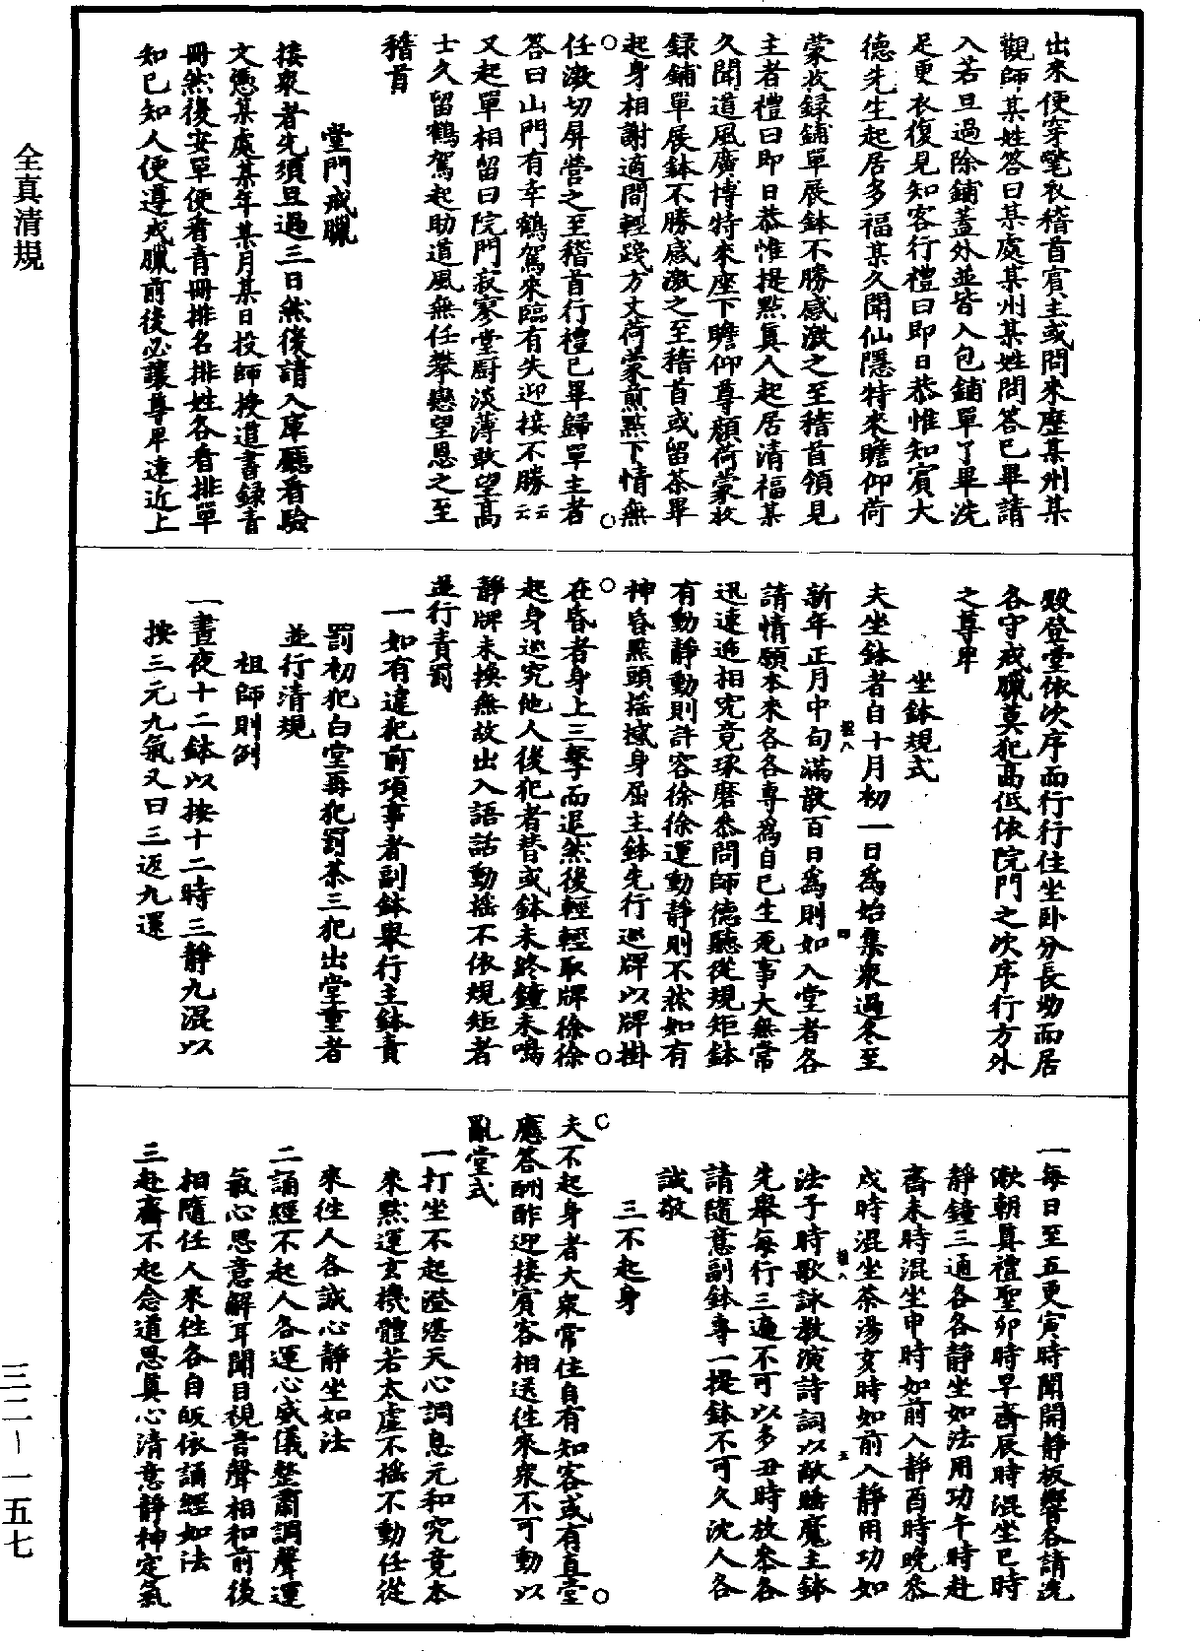 出來便穿氅衣稽首賓主或問來歷某州某
觀師某姓答曰某處某州某姓問答已畢請
入若旦過除鋪蓋外並皆入包鋪單了畢洗
足更衣復見知客行禮曰即日恭惟知賓大
德先生起居多福某久聞仙隱特來瞻仰荷
蒙收録鋪單展鉢不勝感激之至稽首領見
主者禮曰即日恭惟提點真人起居清福某
久聞道風廣博特來座下瞻仰尊顏荷蒙收
録鋪單展鉢不勝感激之至稽首或留茶畢
起身相謝適間輕踐方丈荷蒙煎點下情無
任激切屏營之至稽首行禮已畢歸單主者
答曰山門有幸鶴駕來臨有失迎接不勝云云
又起單相留曰院門寂寥堂厨淡薄敢望高
士久留鶴駕起助道風無任攀戀望恩之至
稽首
堂門戒臘
接衆者先須旦過三日然後請入庫廳看驗
文憑某處某年某月某日投師授道書録青
冊然後安單便看青冊排名排姓各看排單
知已知人便遵戒臘前後必讓尊卑遠近上
殿登堂依次序而行行住坐卧分長幼而居
各守戒臘莫犯高低依院門之次序行方外
之尊卑
坐鉢規式
夫坐鉢者自十月初一日爲始集衆過冬至
新年正月中旬滿散百日爲則如入堂者各
請情願本來各各專爲自己生死事大無常
迅速遞相究竟琢磨叅問師德聽從規矩鉢
有動靜動則許容徐徐運動靜則不然如有
神昏點頭摇撼身屈主鉢先行巡牌以牌掛
在昏者身上三擊而退然後輕輕取牌徐徐
起身巡究他人後犯者替或鉢未終鐘未鳴
靜牌未換無故出入語話動摇不依規矩者
並行責罰
一如有違犯前項事者副鉢舉行主鉢責
罰初犯白堂再犯罰茶三犯出堂重者
並行清規
祖師則例
一晝夜十二鉢以按十二時三靜九混以
按三元九氣又曰三返九還
一每日至五更寅時聞開靜板響各請洗
漱朝真禮聖卯時早齋辰時混坐巳時
靜鐘三通各各靜坐如法用功午時赴
齋未時混坐申時如前入靜酉時晚叅
戌時混坐茶湯亥時如前入靜用功如
法子時歌詠教演詩詞以敵睡魔主鉢
先舉每行三遍不可以多丑時放叅各
請隨意副鉢專一提鉢不可久沈人各
誠敬
三不起身
夫不起身者大衆常住自有知客或有直堂
應答酬酢迎接賓客相送往來衆不可動以
亂堂式
一打坐不起澄湛天心調息元和究竟本
來默運玄機體若太虛不摇不動任從
來往人各誠心靜坐如法
二誦經不起人各運心威儀整肅調聲運
氣心思意解耳聞目視音聲相和前後
相隨任人來往各自皈依誦經如法
三赴齋不起念道思真心清意靜神定氣
全真清規
三二—一五七